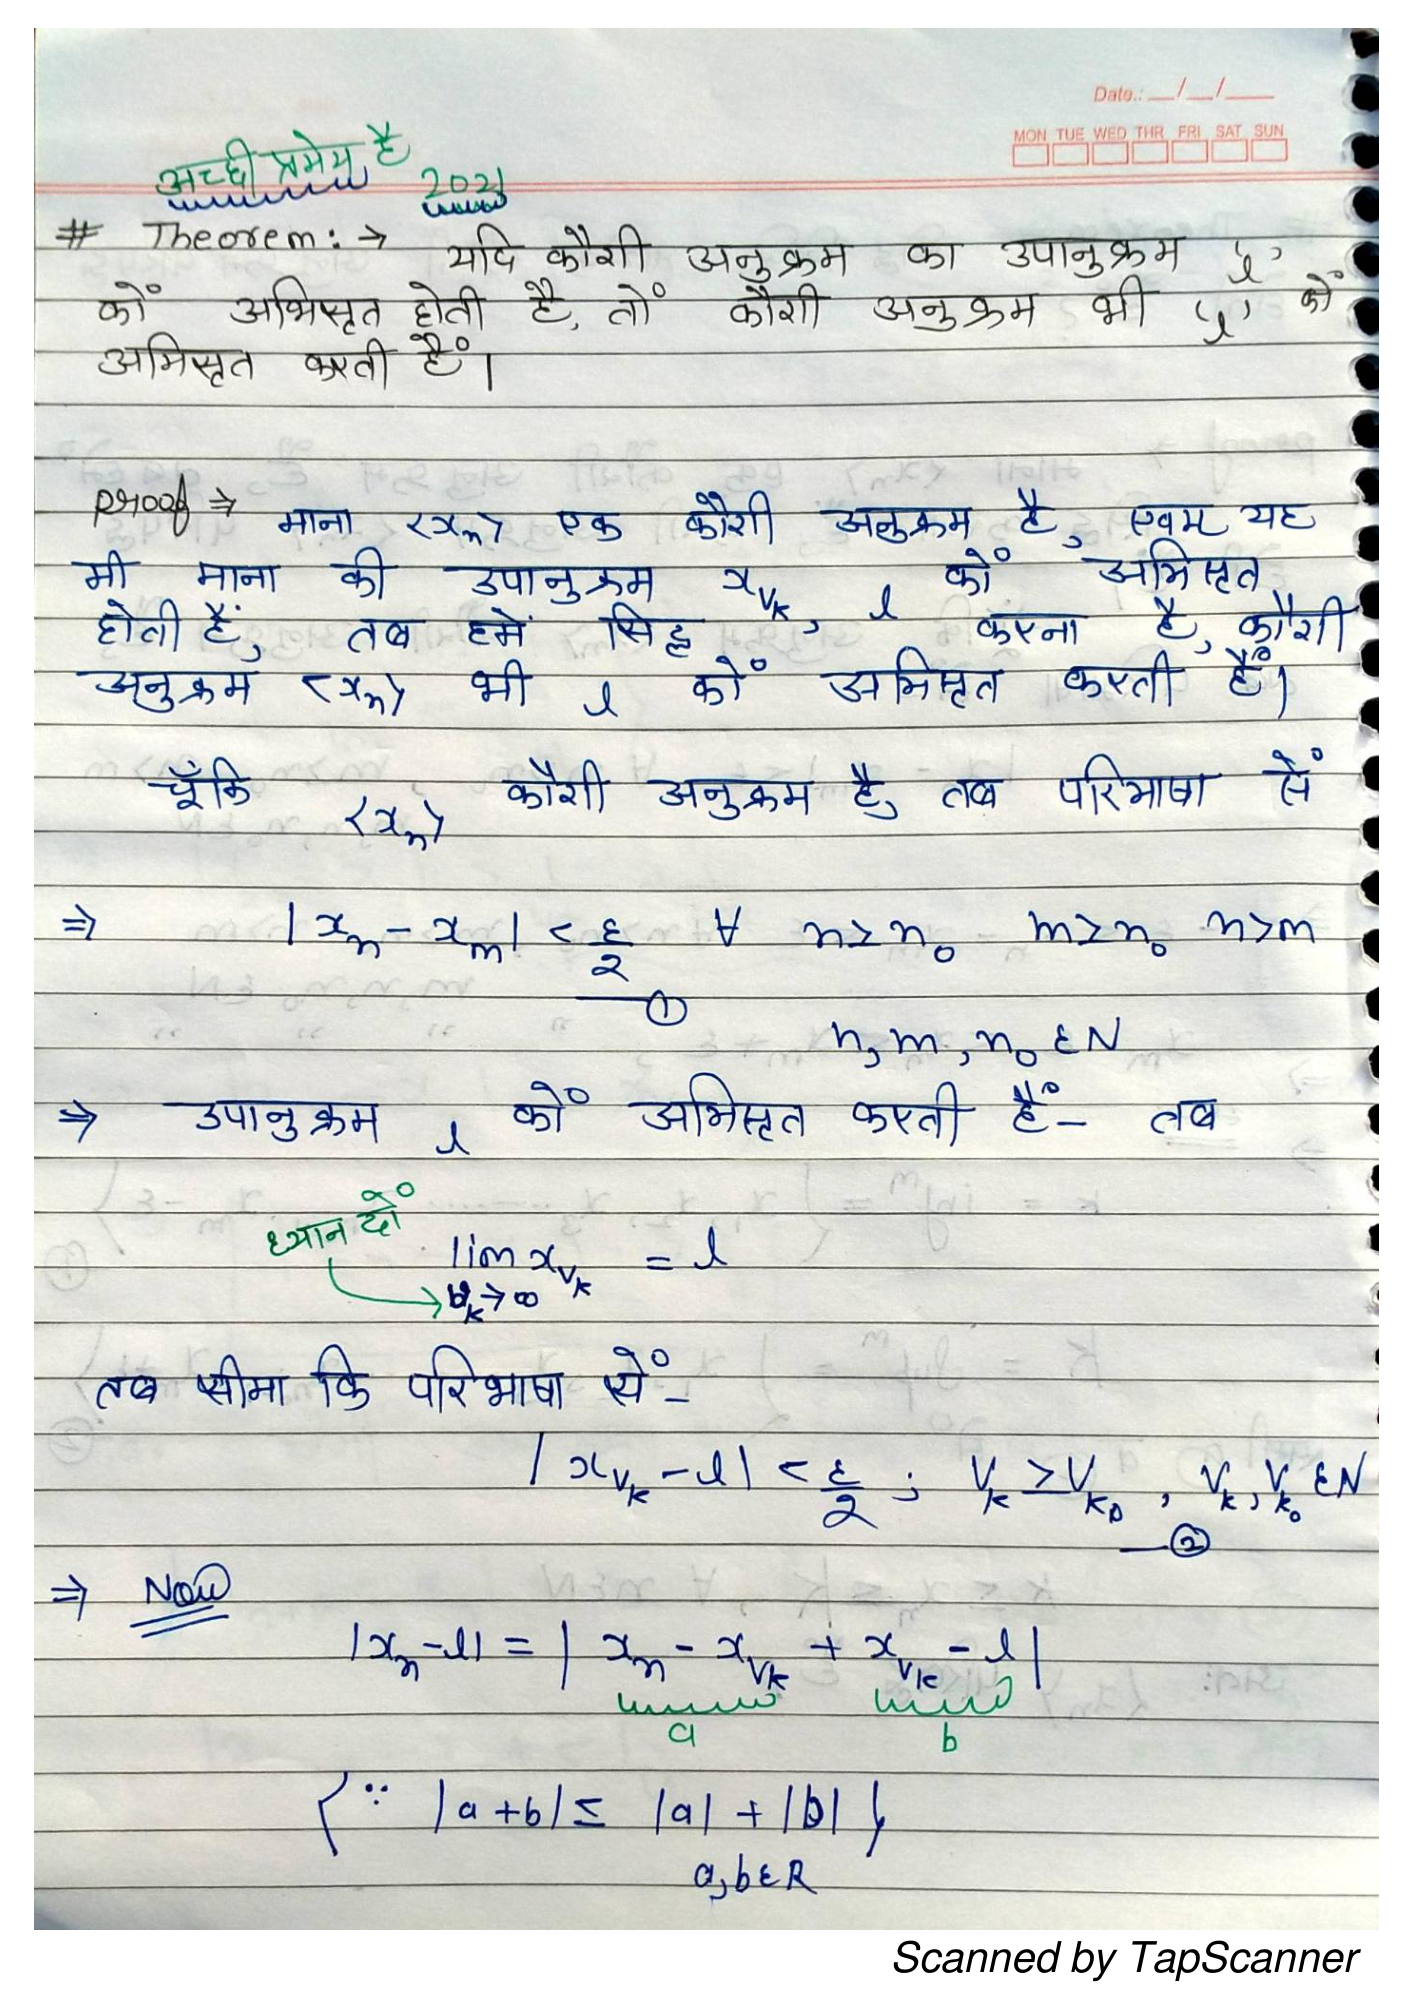 Date.: __/__/____
MON TUE WED THR FRI SAT SUN
अच्छी प्रमेय है 2021
# Theorem: → यदि कौशी अनुक्रम का उपानुक्रम 'l'
कों अभिसृत होती है, तों कौशी अनुक्रम भी 'l' कों
अभिसृत करती हैं।
proof ⇒ माना <xₙ> एक कौशी अनुक्रम है, एवम यह
भी माना की उपानुक्रम x_{V_k}, l कों अभिसृत
होती हैं, तब हमें सिद्ध करना है, कौशी
अनुक्रम <xₙ> भी l कों अभिसृत करती हैं।
चूँकि <xₙ> कौशी अनुक्रम है, तब परिभाषा सें
⇒ |xₙ - xₘ| < ε/2 ∀ n≥n₀ m≥n₀ n>m
—①
n, m, n₀ ε N
⇒ उपानुक्रम l कों अभिसृत करती हैं- तब
ध्यान दों
lim x_{V_k} = l
V_k→∞
तब सीमा कि परिभाषा सें-
|x_{V_k} - l| < ε/2 ; V_k ≥ V_{k₀}, V_k, V_{k₀} ε N
—②
⇒ Now
|xₙ - l| = | xₙ - x_{V_k} + x_{V_k} - l |
a b
{∵ |a+b| ≤ |a| + |b| }
a, b ε R
Scanned by TapScanner